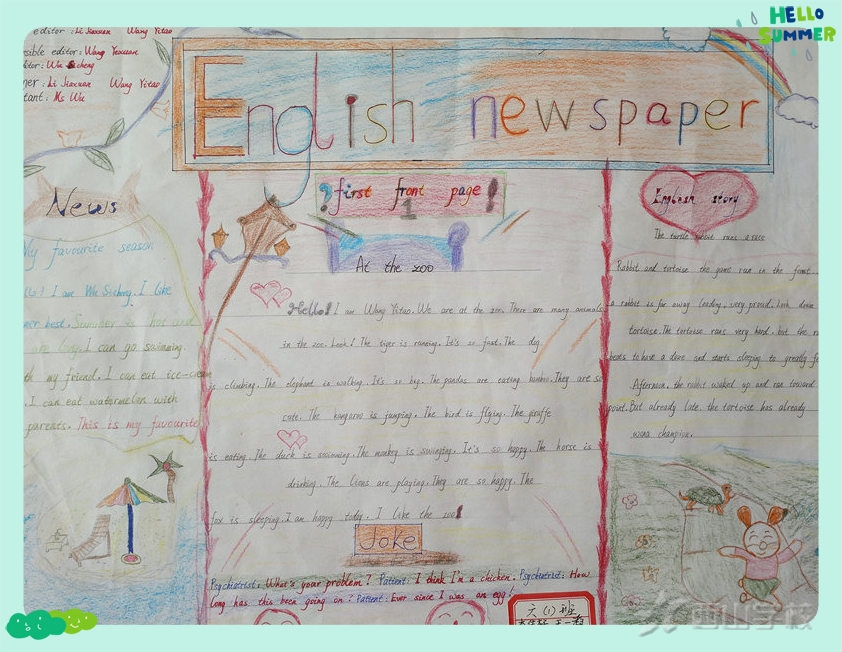 HELLO
SUMMER
editor: Li Jiaxuan Wang Yitao
sible editor: Wang Yexuan
itor: Wu Sicheng
ner: Li Jiaxuan Wang Yitao
tant: Ms Wu
English newspaper
News
My favourite season
I am Wu Sicheng. I like
best. Summer is hot and
I can go swimming
my friend. I can eat ice-cream
I can eat watermelon with
parents. This is my favourite
?first front page!
1
At the zoo
Hello! I am Wang Yitao. We are at the zoo. There are many animals
in the zoo. Look! The tiger is running. It's so fast. The dog
is climbing. The elephant is walking. It's so big. The pandas are eating bamboo. They are so
cute. The kangaroo is jumping. The bird is flying. The giraffe
is eating. The duck is swimming. The monkey is swinging. It's so happy. The horse is
drinking. The lions are playing. They are so happy. The
fox is sleeping. I am happy today. I like the zoo!
Joke
Psychiatrist: What's your problem? Patient: I think I'm a chicken. Psychiatrist: How
long has this been going on? Patient: Ever since I was an egg!
English story
The turtle rabbit runs a race
Rabbit and tortoise the gums run in the forest
a rabbit is far away leading, very proud. Look down
tortoise. The tortoise runs very hard, but the
to have a doze and starts sleeping to greatly
Afternoon, the rabbit waked up and ran toward
point. But already late, the tortoise has already
champion.
六(1)班
西山学校